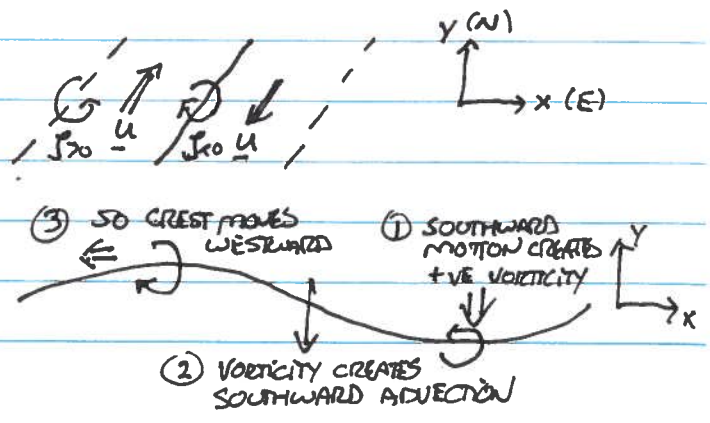 Y (N)
X (E)
ζ>0 u ζ<0 u
③ SO CREST MOVES
WESTWARD
① SOUTHWARD
MOTION CREATES
+VE VORTICITY
Y
X
② VORTICITY CREATES
SOUTHWARD ADVECTION